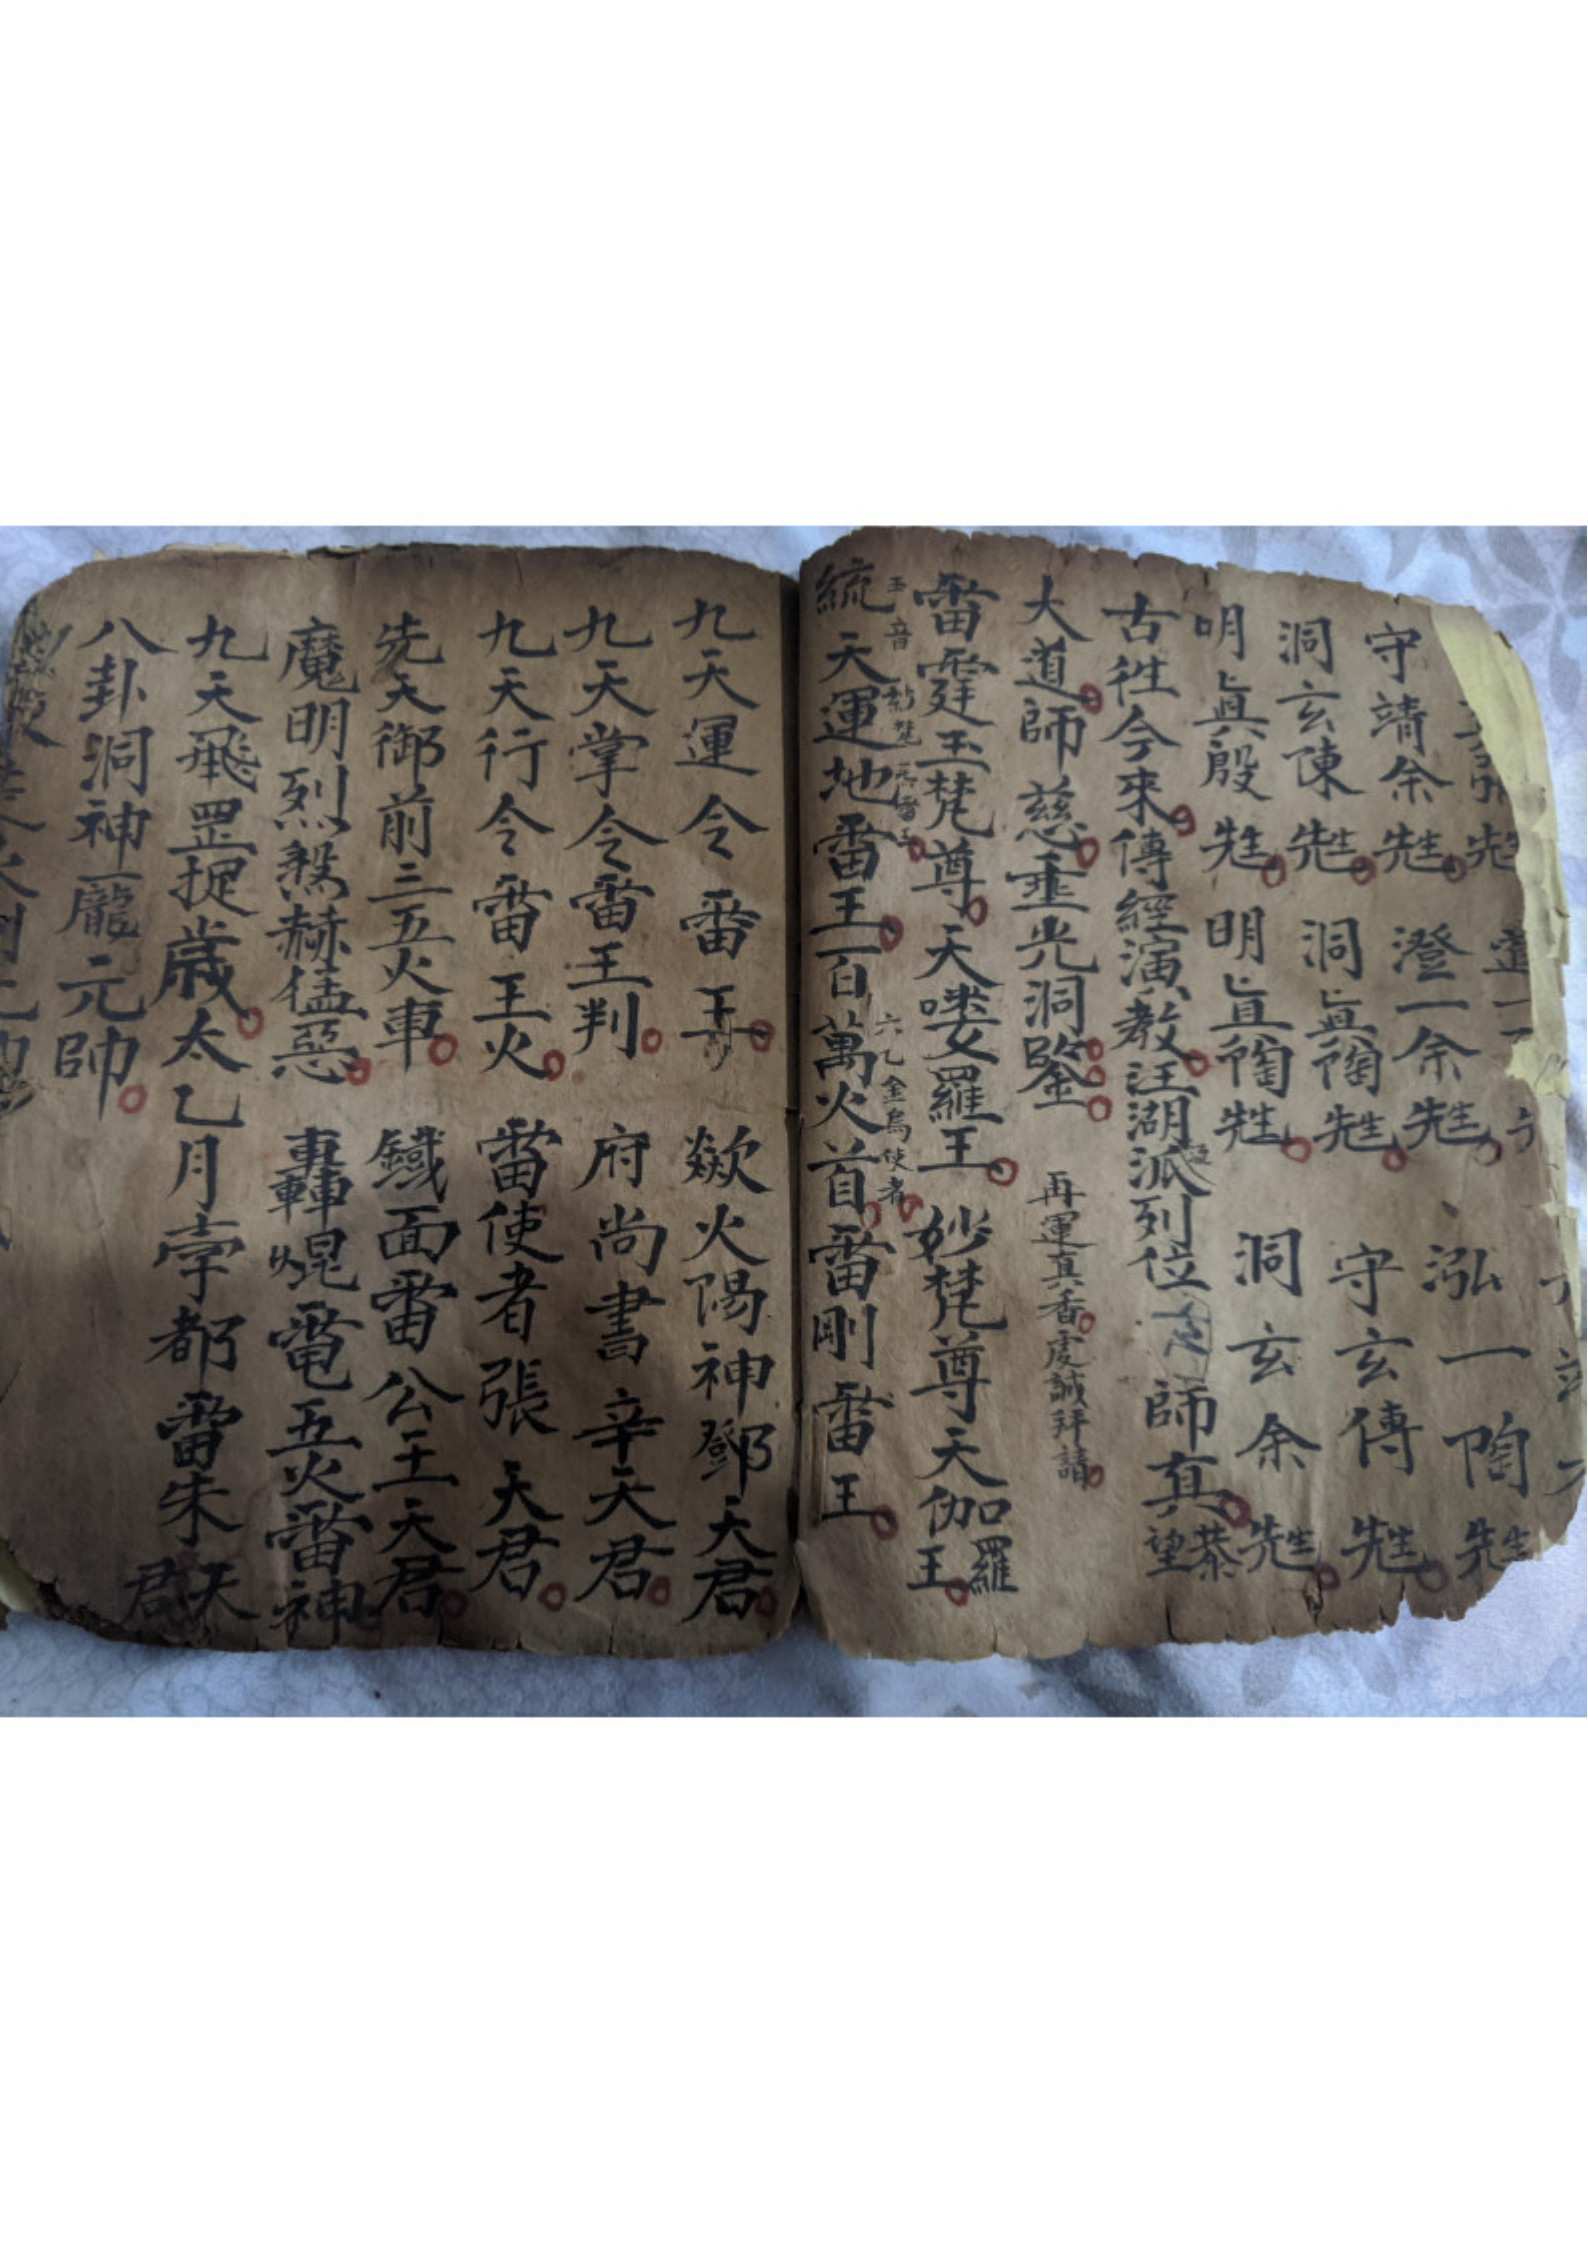 先生
守靖余先生 澄一余先生 泓一陶先生
洞玄陳先生 洞真陶先生 守玄傅先生
明真殷先生 明真陶先生 洞玄余先生
古徃今來傳經演教江湖派列位 師真恭望
大道師慈垂光洞鑒 再運真香虔誠拜請
雷霆玉梵尊天喽娑羅王妙梵尊天伽羅王
玉音 梵 雷王 六乙金烏使者
統天運地雷王百萬火首雷剛雷王
九天運令雷王 歘火陽神鄧天君
九天掌令雷王判府尚書辛天君
九天行令雷王火雷使者張天君
先天御前三五火車鐵面雷公王天君
魔明烈煞赫猛惡轟焜電五火雷神
九天飛罡捉歲太乙月孛都雷朱天君
八卦洞神龐元帥